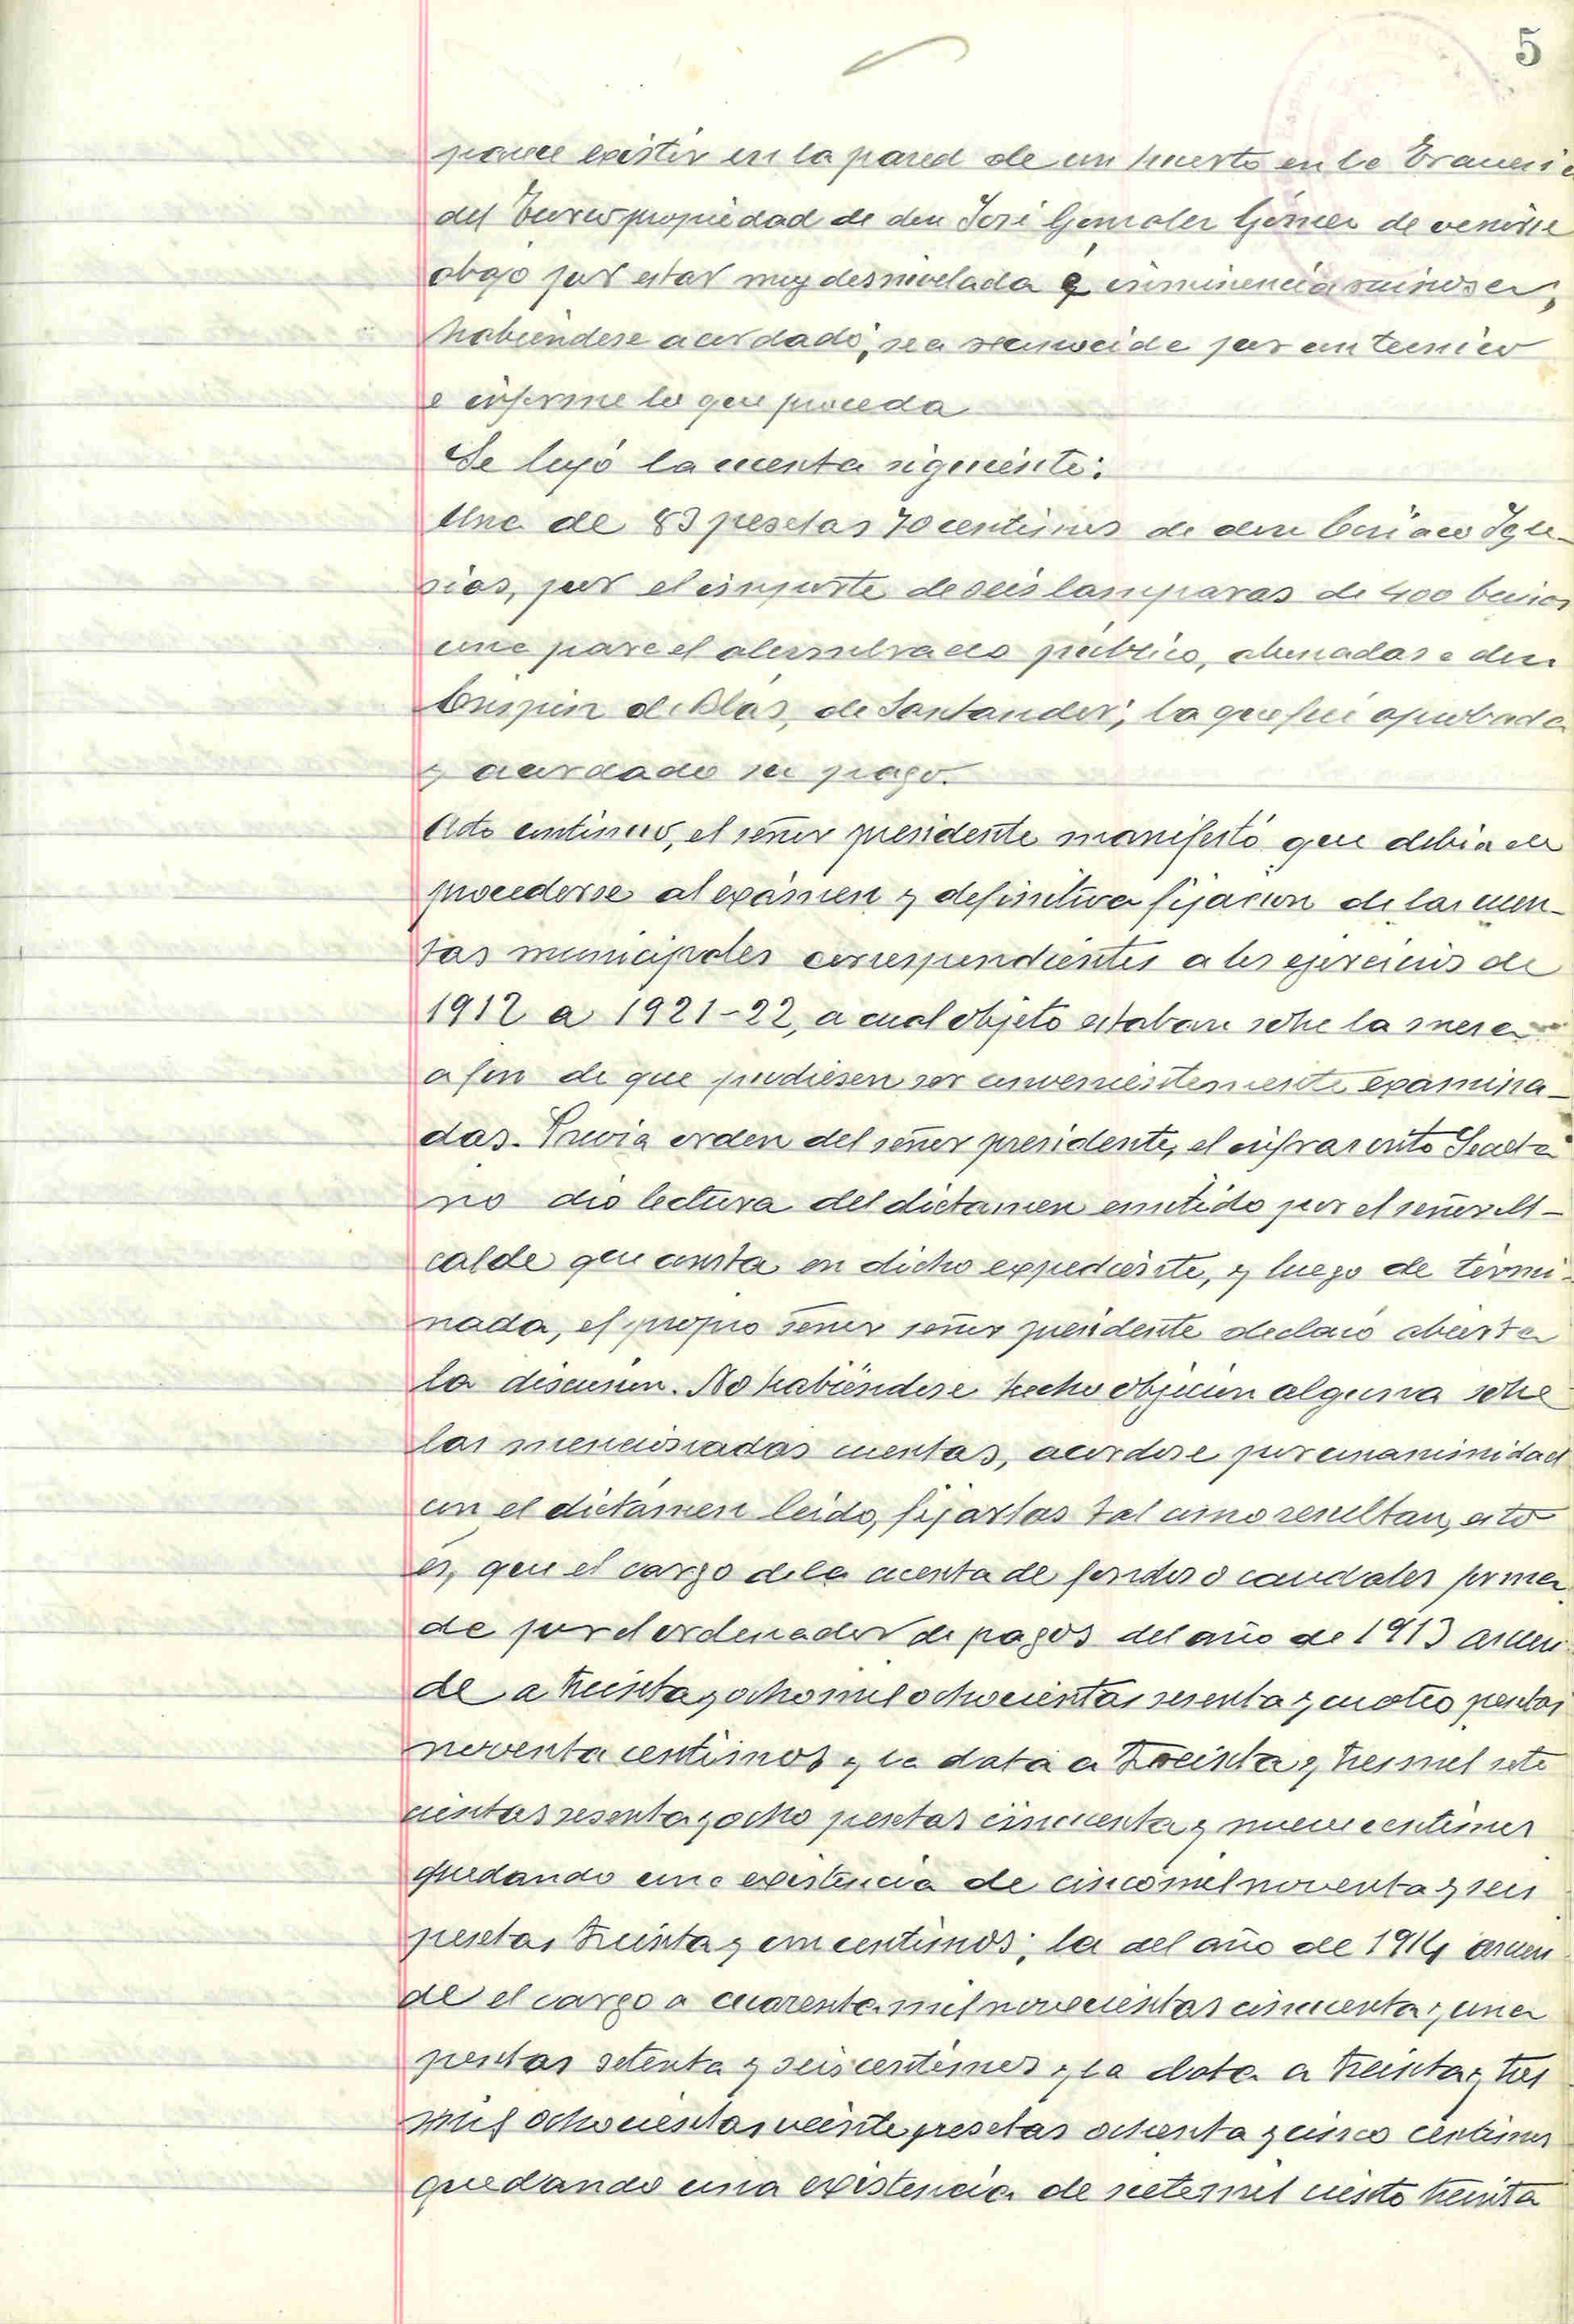 5
parece existir en la pared de un huerto en la Travesía
del Turco propiedad de don José González Gómez de venirse
abajo por estar muy desnivelada é inminencia ruinosa,
habiéndose acordado, sea reconocida por un tecnico
e informe lo que proceda
Se leyó la cuenta siguiente:
Una de 83 pesetas 70 centimos de don Ciriaco Igle-
sias, por el importe de seis lamparas de 400 bujias
una para el alumbrado público, abonadas a don
Crispin de Blás, de Santander; la que fué aprobada
y acordado su pago.
Acto continuo, el señor presidente manifestó que debia de
procederse al exámen y definitiva fijacion de las cuen-
tas municipales correspondientes a los ejercicios de
1912 a 1921-22, a cual objeto estaban sobre la mesa
a fin de que pudiesen ser convenientemente examina-
das. Previa orden del señor presidente, el infrascrito Secreta
rio dio lectura del dictamen emitido por el señor Al-
calde que consta en dicho expediente, y luego de termi-
nada, el propio señor señor presidente declaró abierta
la discusion. No habiéndose hecho objecion alguna sobre
las mencionadas cuentas, acordose por unanimidad
con el dictámen leido, fijarlas tal como resultan, esto
és, que el cargo de la cuenta de fondos o caudales forma
da por el ordenador de pagos del año de 1913 ascien
de a treinta y ocho mil ochocientas sesenta y cuatro pesetas
noventa centimos y la data a treinta y tres mil sete
cientas sesenta y ocho pesetas cincuenta y nueve centimos
quedando una existencia de cinco mil noventa y seis
pesetas treinta y un centimos; la del año de 1914 ascien
de el cargo a cuarenta mil novecientas cincuenta y una
pesetas setenta y seis centimos y la data a treinta y tres
mil ochocientas veinte pesetas ochenta y cinco centimos
quedando una existencia de siete mil ciento treinta